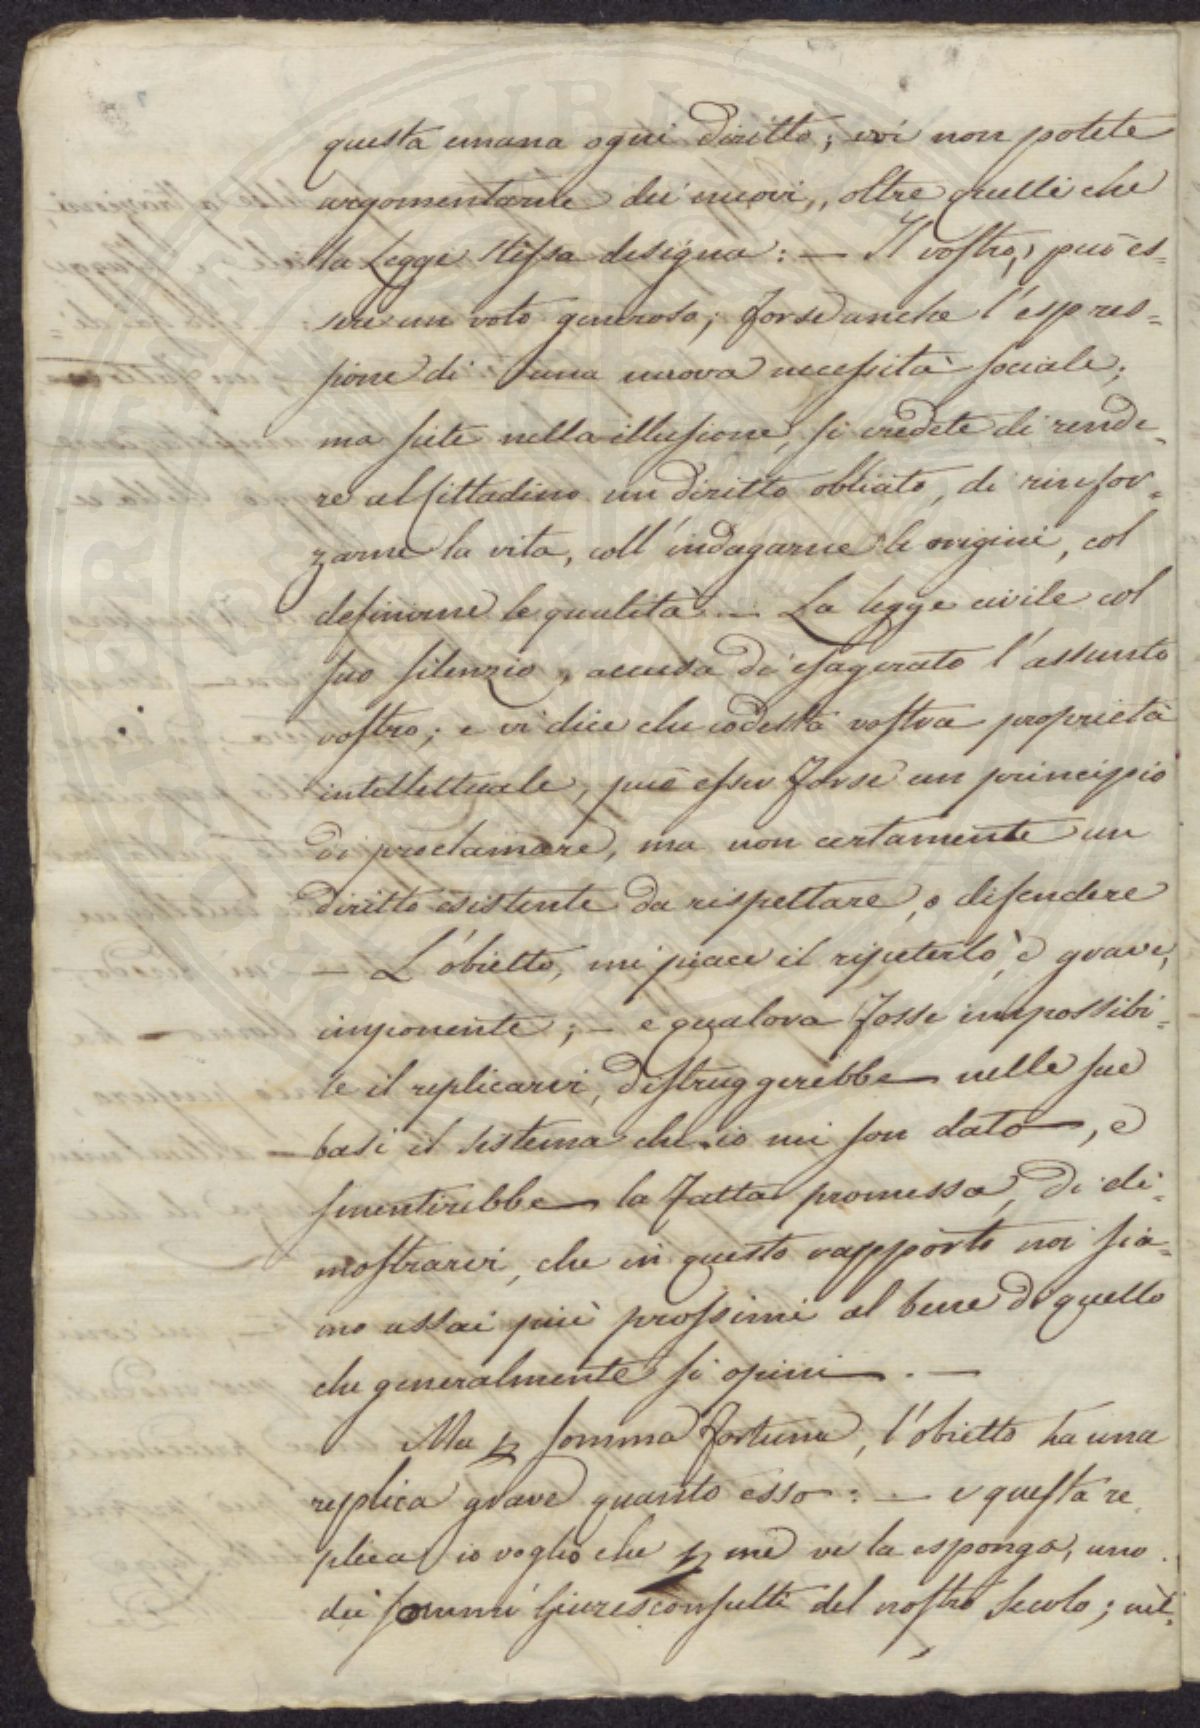 questa emana ogni diritto; voi non potete
argomentarne dei nuovi, oltre quelli che
la Legge stessa designa: — Il vostro, può es=
sere un voto generoso; forse anche l'espres=
sione di una nuova necessità sociale;
ma siete nella illusione, si credete di rende=
re al Cittadino un diritto obliato, di rinfor=
zarne la vita, coll'indagarne le origini, col
definirne le qualità. — La legge civile col
suo silenzio, accusa di esagerato l'assunto
vostro; e vi dice che codesta vostra proprietà
intellettuale, può esser forse un principio
di proclamare, ma non certamente un
diritto esistente da rispettare, o difendere
— L'obietto, mi piace il ripeterlo, è grave,
imponente; — e qualora fosse impossibi=
le il replicarvi, distruggerebbe nelle sue
basi il sistema che io mi son dato, e
smentirebbe la fatta promessa, di di=
mostrarvi, che in questo rapporto noi sia=
mo assai più prossimi al bene di quello
che generalmente si opini. —
Ma p somma fortuna, l'obietto ha una
replica grave quanto esso: — e questa re
plica io voglio che p me ve la esponga, uno
dei sommi Giureconsulti del nostro Secolo; nel=